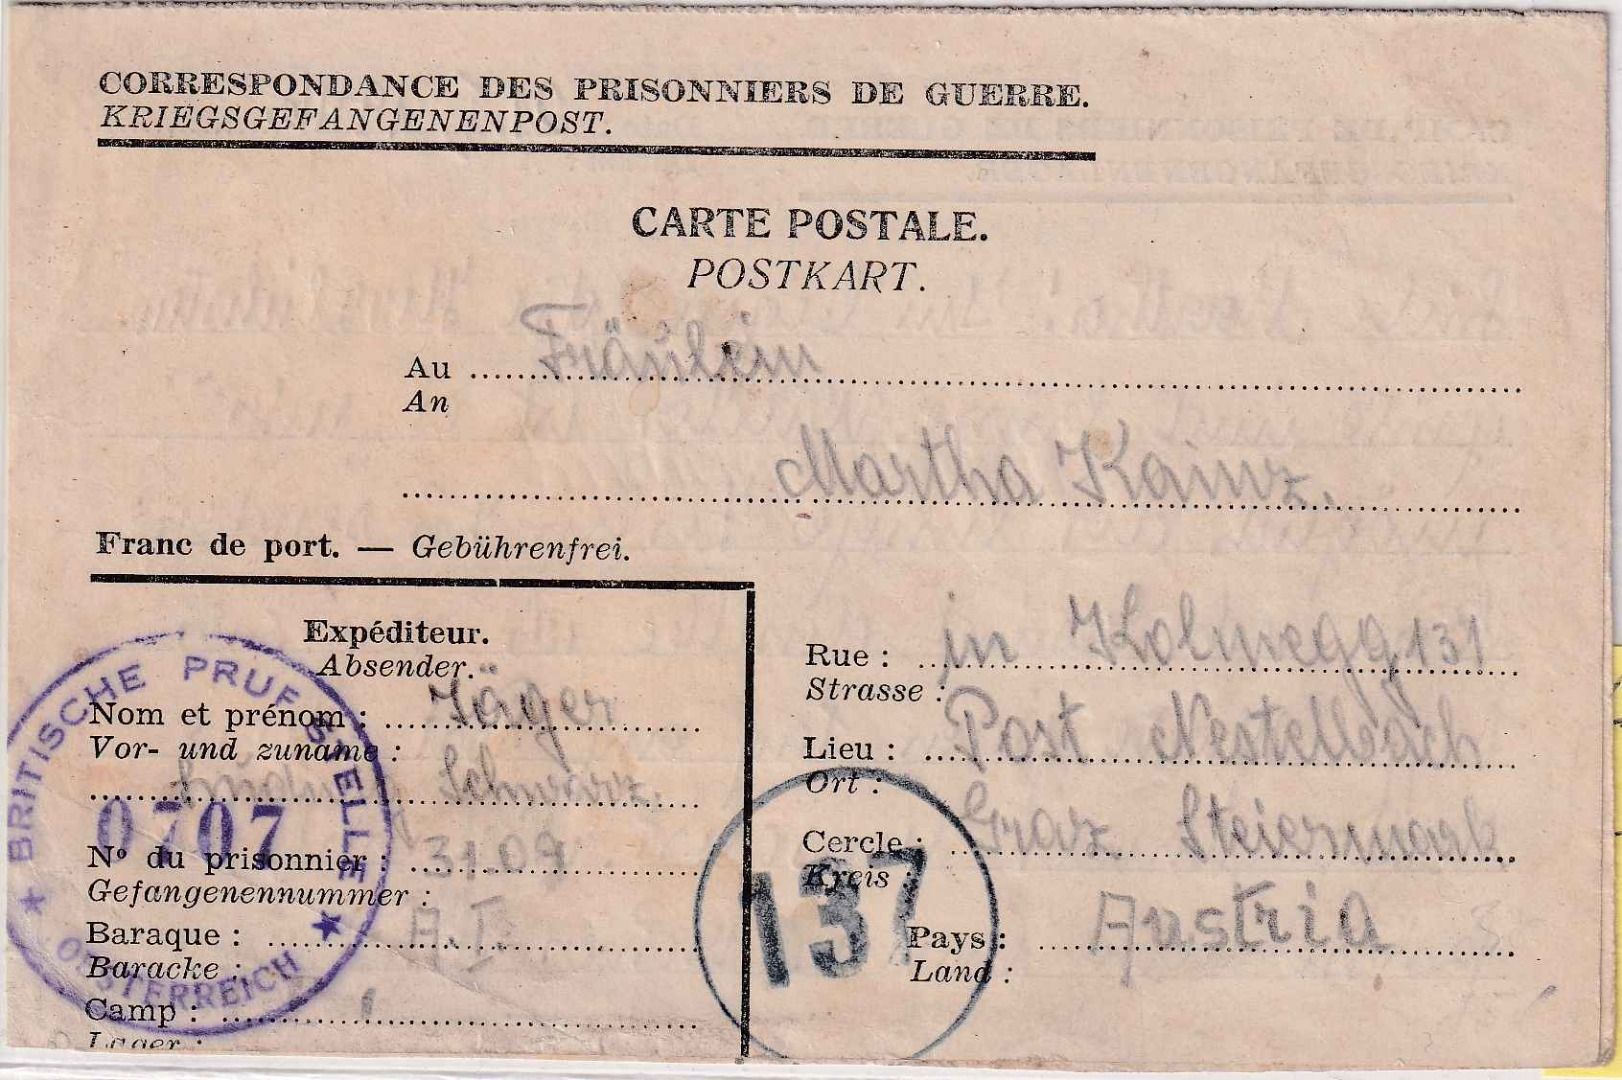 CORRESPONDANCE DES PRISONNIERS DE GUERRE.
KRIEGSGEFANGENENPOST.
CARTE POSTALE.
POSTKART.
Au Fräulein
An
Martha Kainz.
Franc de port. — Gebührenfrei.
Expéditeur.
Absender.
Nom et prénom : Jäger
Vor- und zuname :
Schwarz.
N° du prisonnier : 3109
Gefangenennummer :
Baraque : A. I
Baracke :
Camp :
Lager :
Rue : in Kolmegg 131
Strasse :
Lieu : Post Nestelbach
Ort :
Cercle : Graz Steiermark
Kreis :
Pays : Austria
Land :
BRITISCHE PRUFSTELLE
0707
OESTERREICH
137